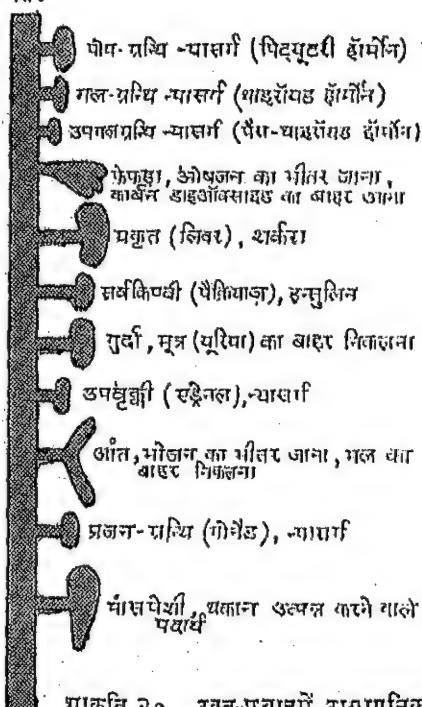 पोष-ग्रन्थि-न्यासर्ग (पिट्यूटरी हॉर्मोन)
गल-ग्रन्थि-न्यासर्ग (थाइरॉयड हॉर्मोन)
उपगलग्रन्थि-न्यासर्ग (पैरा-थाइरॉयड हॉर्मोन)
फेफड़ा, ओषजन का भीतर जाना,
कार्बन डाइऑक्साइड का बाहर आना
यकृत (लिवर), शर्करा
सर्वकिण्वी (पैंक्रियाज़), इन्सुलिन
गुर्दा, मूत्र (यूरिया) का बाहर निकलना
उपवृक्की (एड्रेनल), न्यासर्ग
आंत, भोजन का भीतर जाना, मल का
बाहर निकलना
प्रजन-ग्रन्थि (गोनैड), न्यासर्ग
मांसपेशी, थकान उत्पन्न करने वाले
पदार्थ